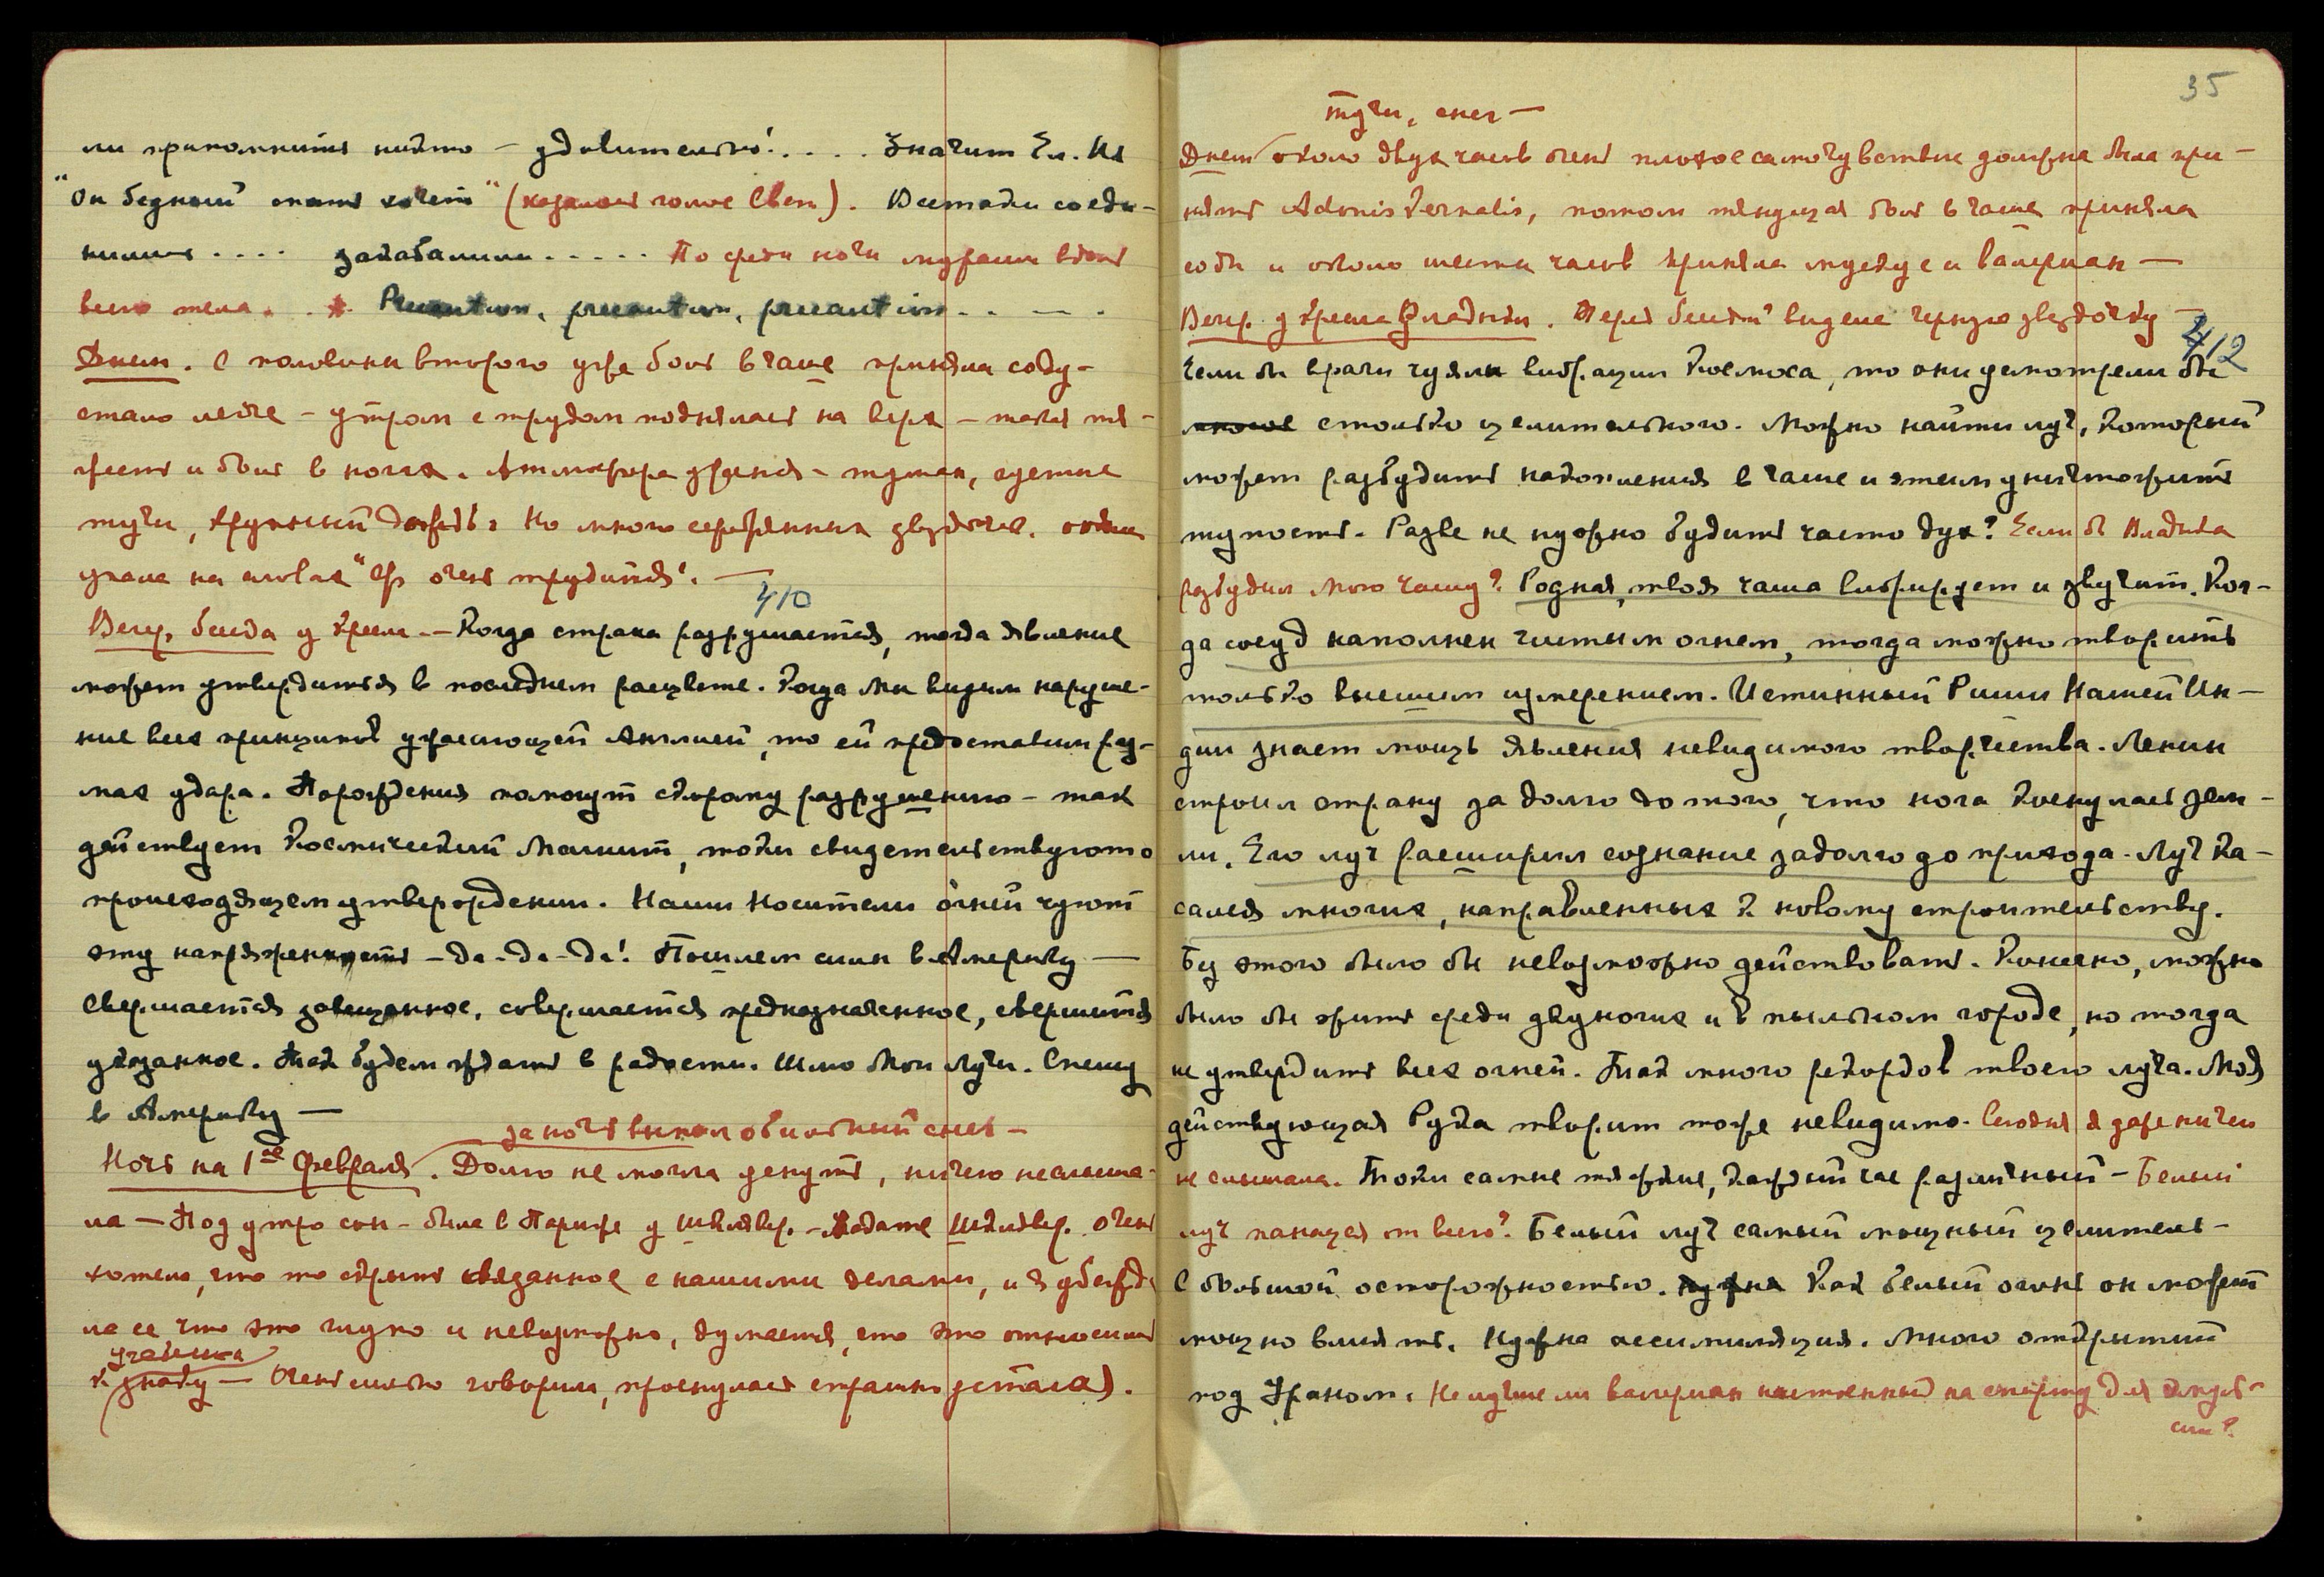 ли припомнить никто — удивительно! . . . . Значит Ел. Ив
"он бедный спать хочет" (казалось голос Свет.). Всетаки соеди-
нились . . . . закабалили . . . . . По среди ночи мурашки вдоль
всего тела. Precaution, precaution, precaution . . — .
Днем. С половины второго ужа боль в чаше приняла соду —
стало легче — утром с трудом поднялась на верх — такая тя-
жесть и боль в ногах. Атмосфера ужасная — туман, густые
тучи, крупный дождь. Но много серебрянных звездочек.
указ на словах "Ур. очень трудится". —
410
Вечер, беседа у Кресла. — Когда страна разрушается, тогда явление
может утвердиться в последнем расцвете. Когда Мы видим наруше-
ние всех принципов ужасающей Англией, то ей предоставим раз-
мах удара. Порождения помогут скорому разрушению — так
действует Космический Магнит, токи свидетельствуют о
происходящем утверждении. Наши Носители огней чуют
эту напряженность — да-да-да! Пошлем в Америку —
Свершается завещанное, совершается предназначенное, свершится
указанное. Так будем ждать в радости. Шлю Мои Лучи. Спешу
в Америку —
за ночь выпал обильный снег —
Ночь на 1ое Февраля. Долго не могла уснуть, ничего не слыша-
ла — Под утро сон — была в Париже у Шклявер. — Madame Шклявер. очень
хотела, что то скрыть связанное с нашими делами, и я убежда
ла ее что это глупо и невозможно, думается, сто это относится
ученика
к знаку — Очень сильно говорила, проснулась страшно устала).
35
тучи, снег —
Днем около двух часов очень плохое самочувствие должна была при-
нять Adonis Vernalis, потом тянущая боль в чаше приняла
соды и около шести часов приняла мускус и валериан —
Вечер. у кресла Владыки. Перед беседой видела черную звездочку —
412
Если бы врачи чуяли вибрации Космоса, то они усмотрели бы
многое столько целительного. Можно найти луч, который
может разбудить накопления в чаше и этим уничтожить
тупость. Разве не нужно будить часто дух? Если б Владыка
разбудил мою чашу? Родная, твоя чаша вибрирует и звучит. Ког-
да сосуд наполнен чистым огнем, тогда можно творить
только высшим измерением. Истинный Риши Нашей Ин-
дии знает мощь явления невидимого творчества. Ленин
строил страну за долго до того, что нога коснулась зем-
ли. Его луч расширил сознание задолго до прихода. Луч ка-
сался многих, направленных к новому строительству.
Без этого было бы невозможно действовать. Конечно, можно
было бы жить среди двуногих и в пыльном городе, но тогда
не утвердить всех огней. Так много рекордов твоего луча. Моя
действующая Рука творит тоже невидимо. Сегодня я даже ничего
не слышала. Токи самые тяжкие, каждый час различный — Белый
луч панацея от всего? Белый луч самый мощный целитель —
С большой осторожностью. нужна Как белый огонь он может
мощно влиять. Нужна ассимиляция. Много открытий
под Ураном. Не лучше ли валериан настоенный на спирту для